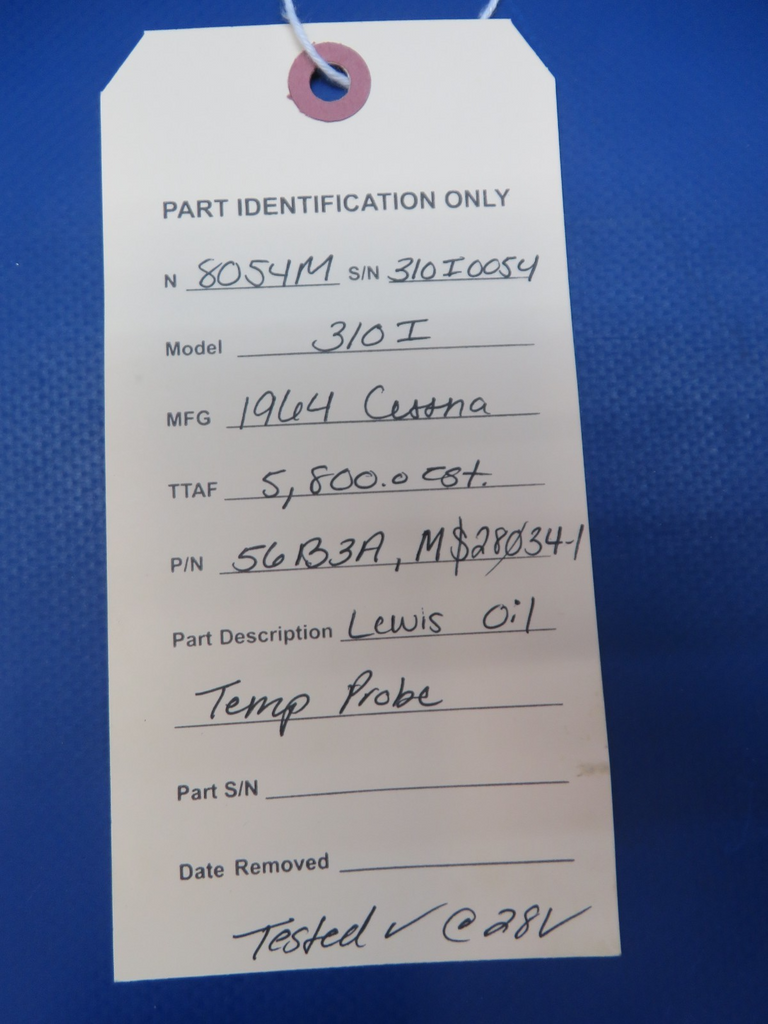 PART IDENTIFICATION ONLY
N 8054M S/N 310I0054
Model 310 I
MFG 1964 Cessna
TTAF 5,800.0 est.
P/N 56B3A, MS28034-1
Part Description Lewis Oil
Temp Probe
Part S/N
Date Removed
Tested ✓ @ 28V